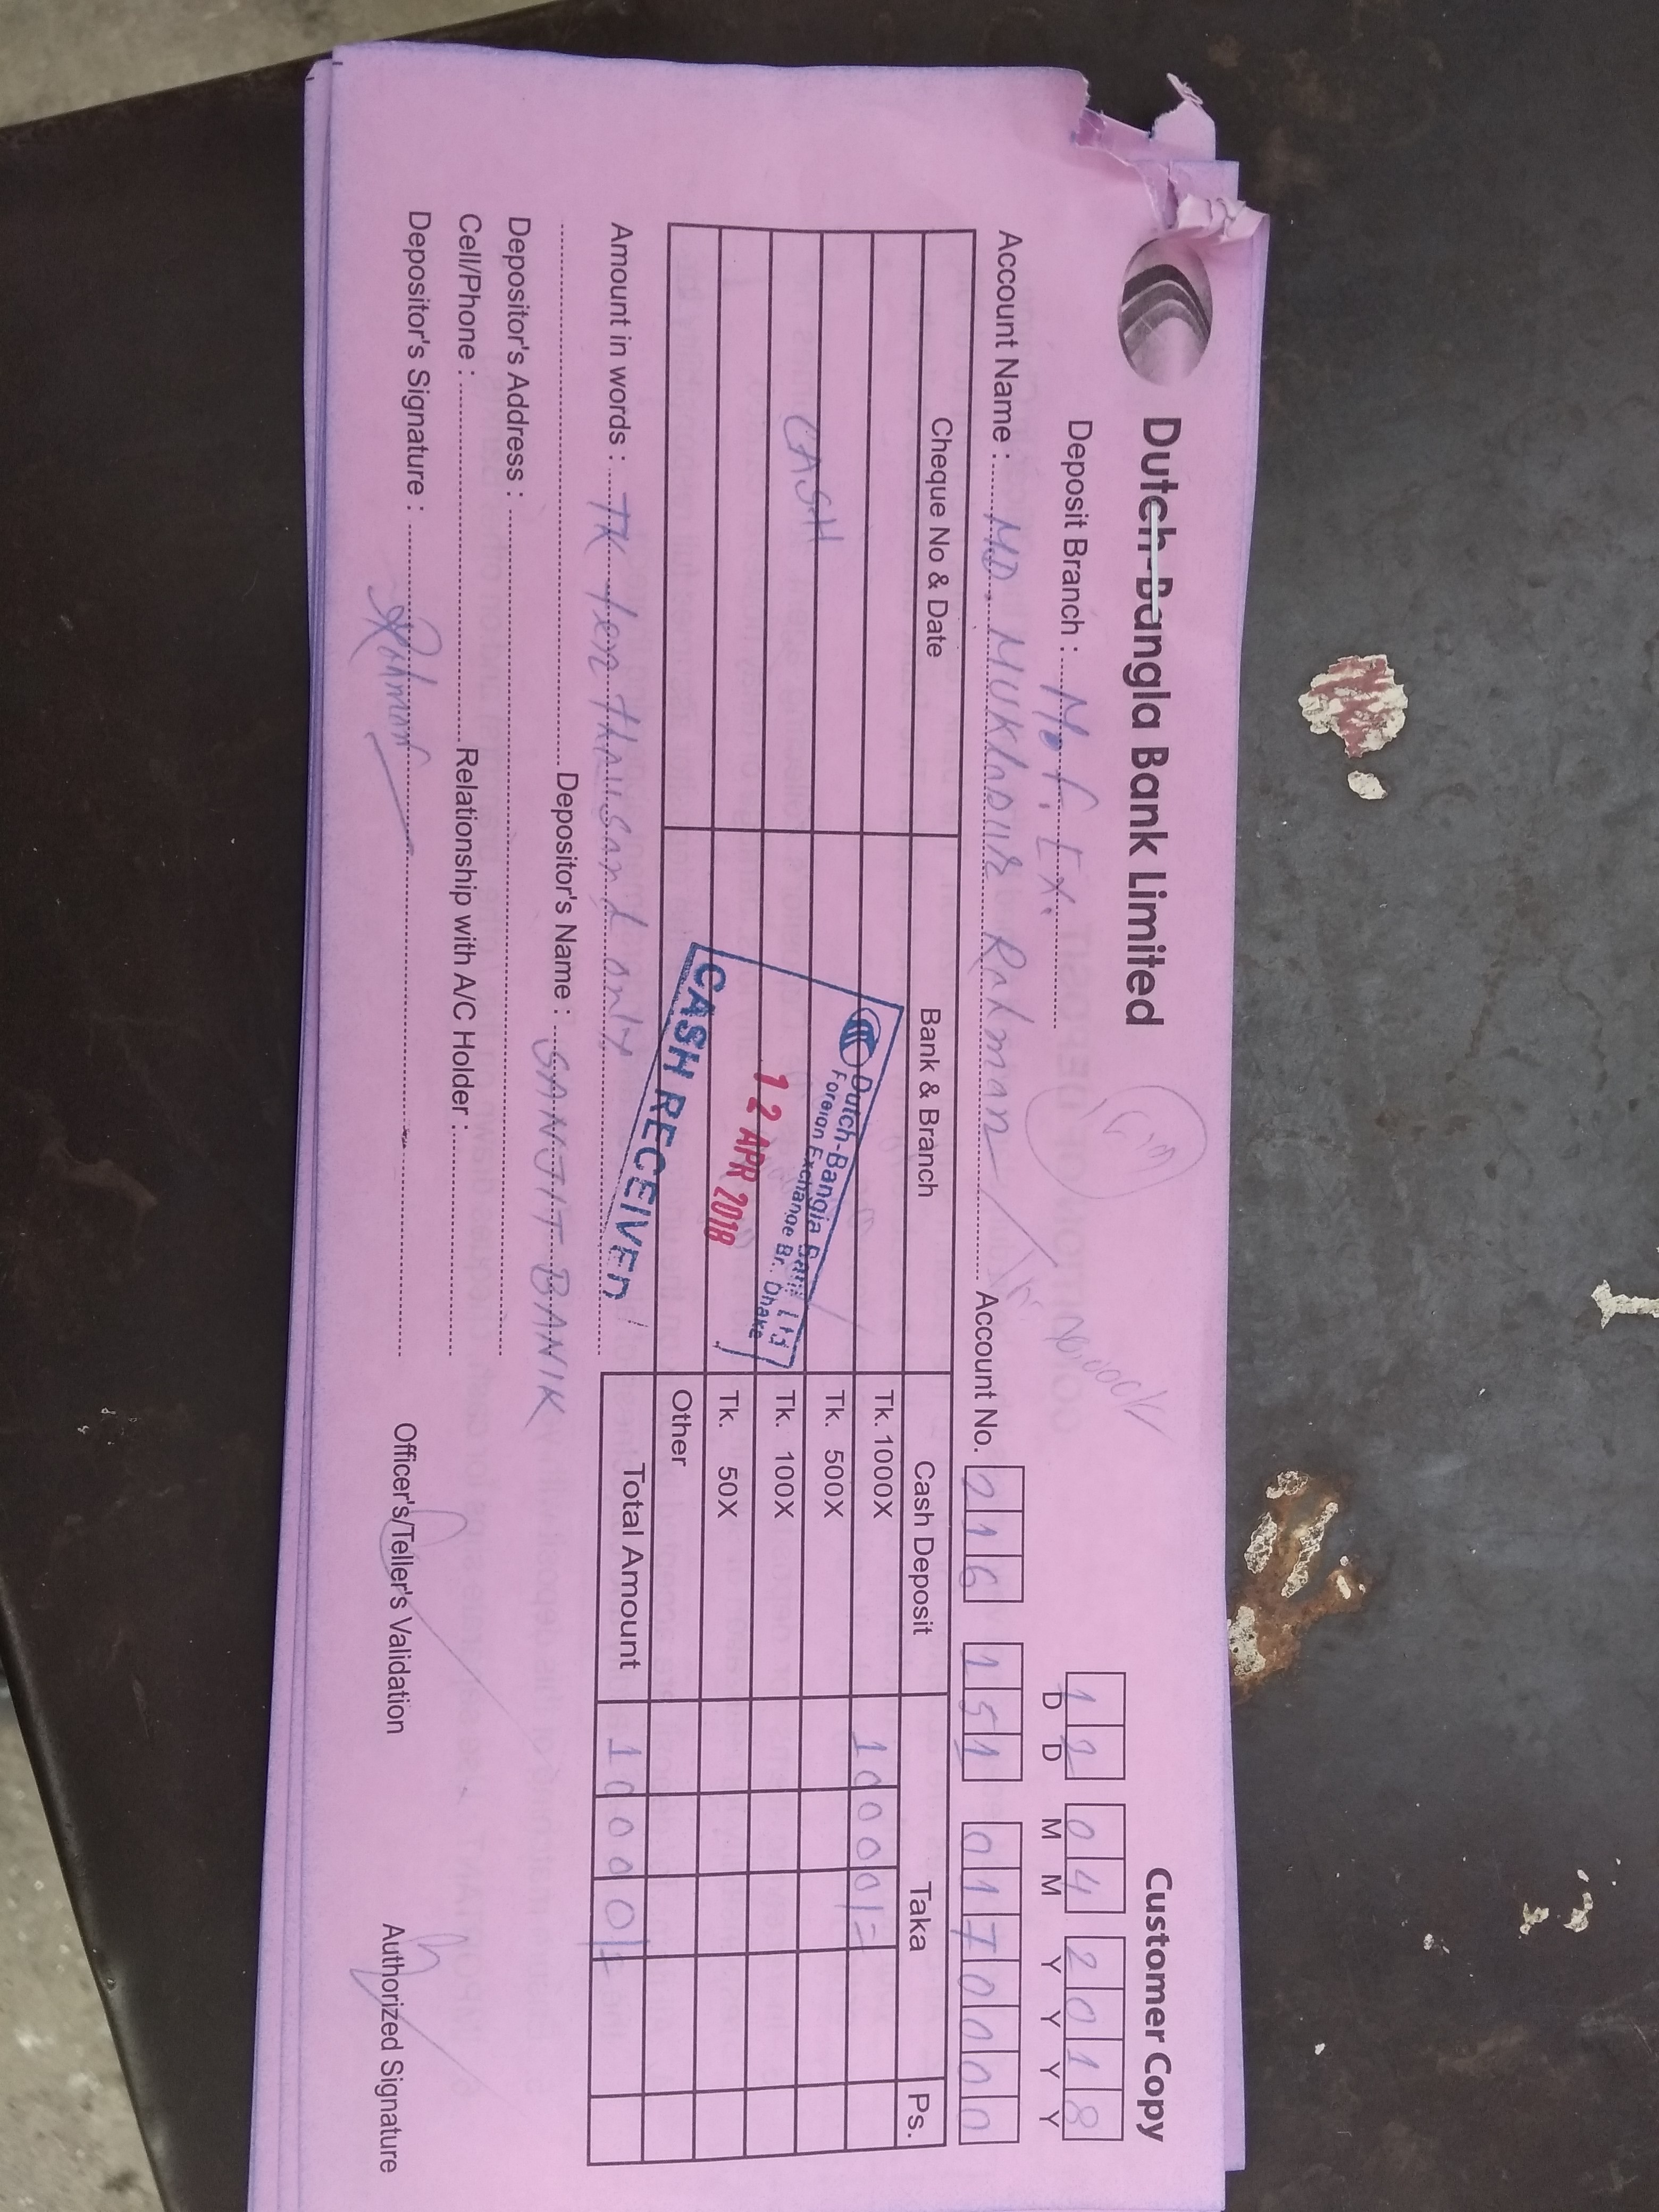 Dutch-Bangla Bank Limited
Customer Copy
Deposit Branch : Mot. Ex.
12 04 2018
D D M M Y Y Y Y
Account Name : MD. MUKhlesur Rahman
Account No. 216 151 0170000
Cheque No & Date Bank & Branch Cash Deposit Taka Ps.
Tk. 1000X 10000/=
Tk. 500X
CASH
Tk. 100X
Tk. 50X
Other
Dutch-Bangla Bank Ltd
Foreign Exchange Br. Dhaka
12 APR 2018
CASH RECEIVED
Total Amount 10000/=
Amount in words : TK ten thousand only
Depositor's Name : SANJIT BANIK
Depositor's Address :
Cell/Phone : Relationship with A/C Holder :
Depositor's Signature :
Officer's/Teller's Validation
Authorized Signature